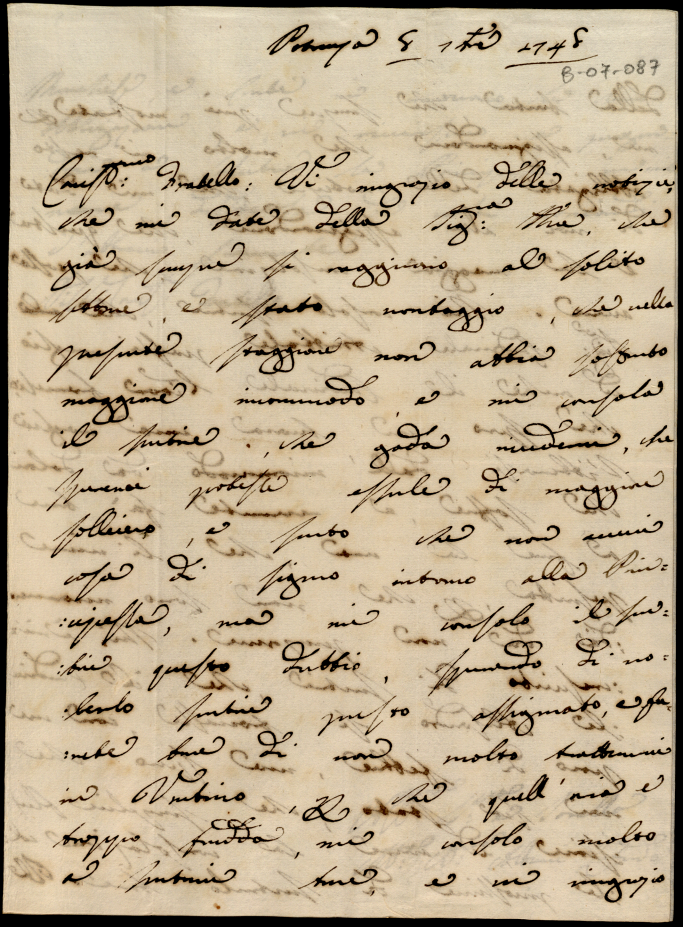 Perugia 8 7bre 1748
B-07-087
Cariss:mo Fratello: Vi ringrazio delle notizie,
che mi date della Sig:ra che
già sempre si raggirano al solito
è stato vantaggio, che nella
presente staggione non abbia sofferto
maggiore incommodo, e mi consola
il sentire, che goda che
potesse essere di maggiore
sollievo, e sento che non
cosa di siguro intorno alla Prin=
:cipessa, ma mi consolo il sen=
:tire questo dubbio, sperando di vo=
:lerlo sentire presto assigurato, e fa=
:rebe bene di non molto trattenersi
in Urbino, che quell'aria è
troppo fredda, mi consolo molto
a sentire e vi ringrazio